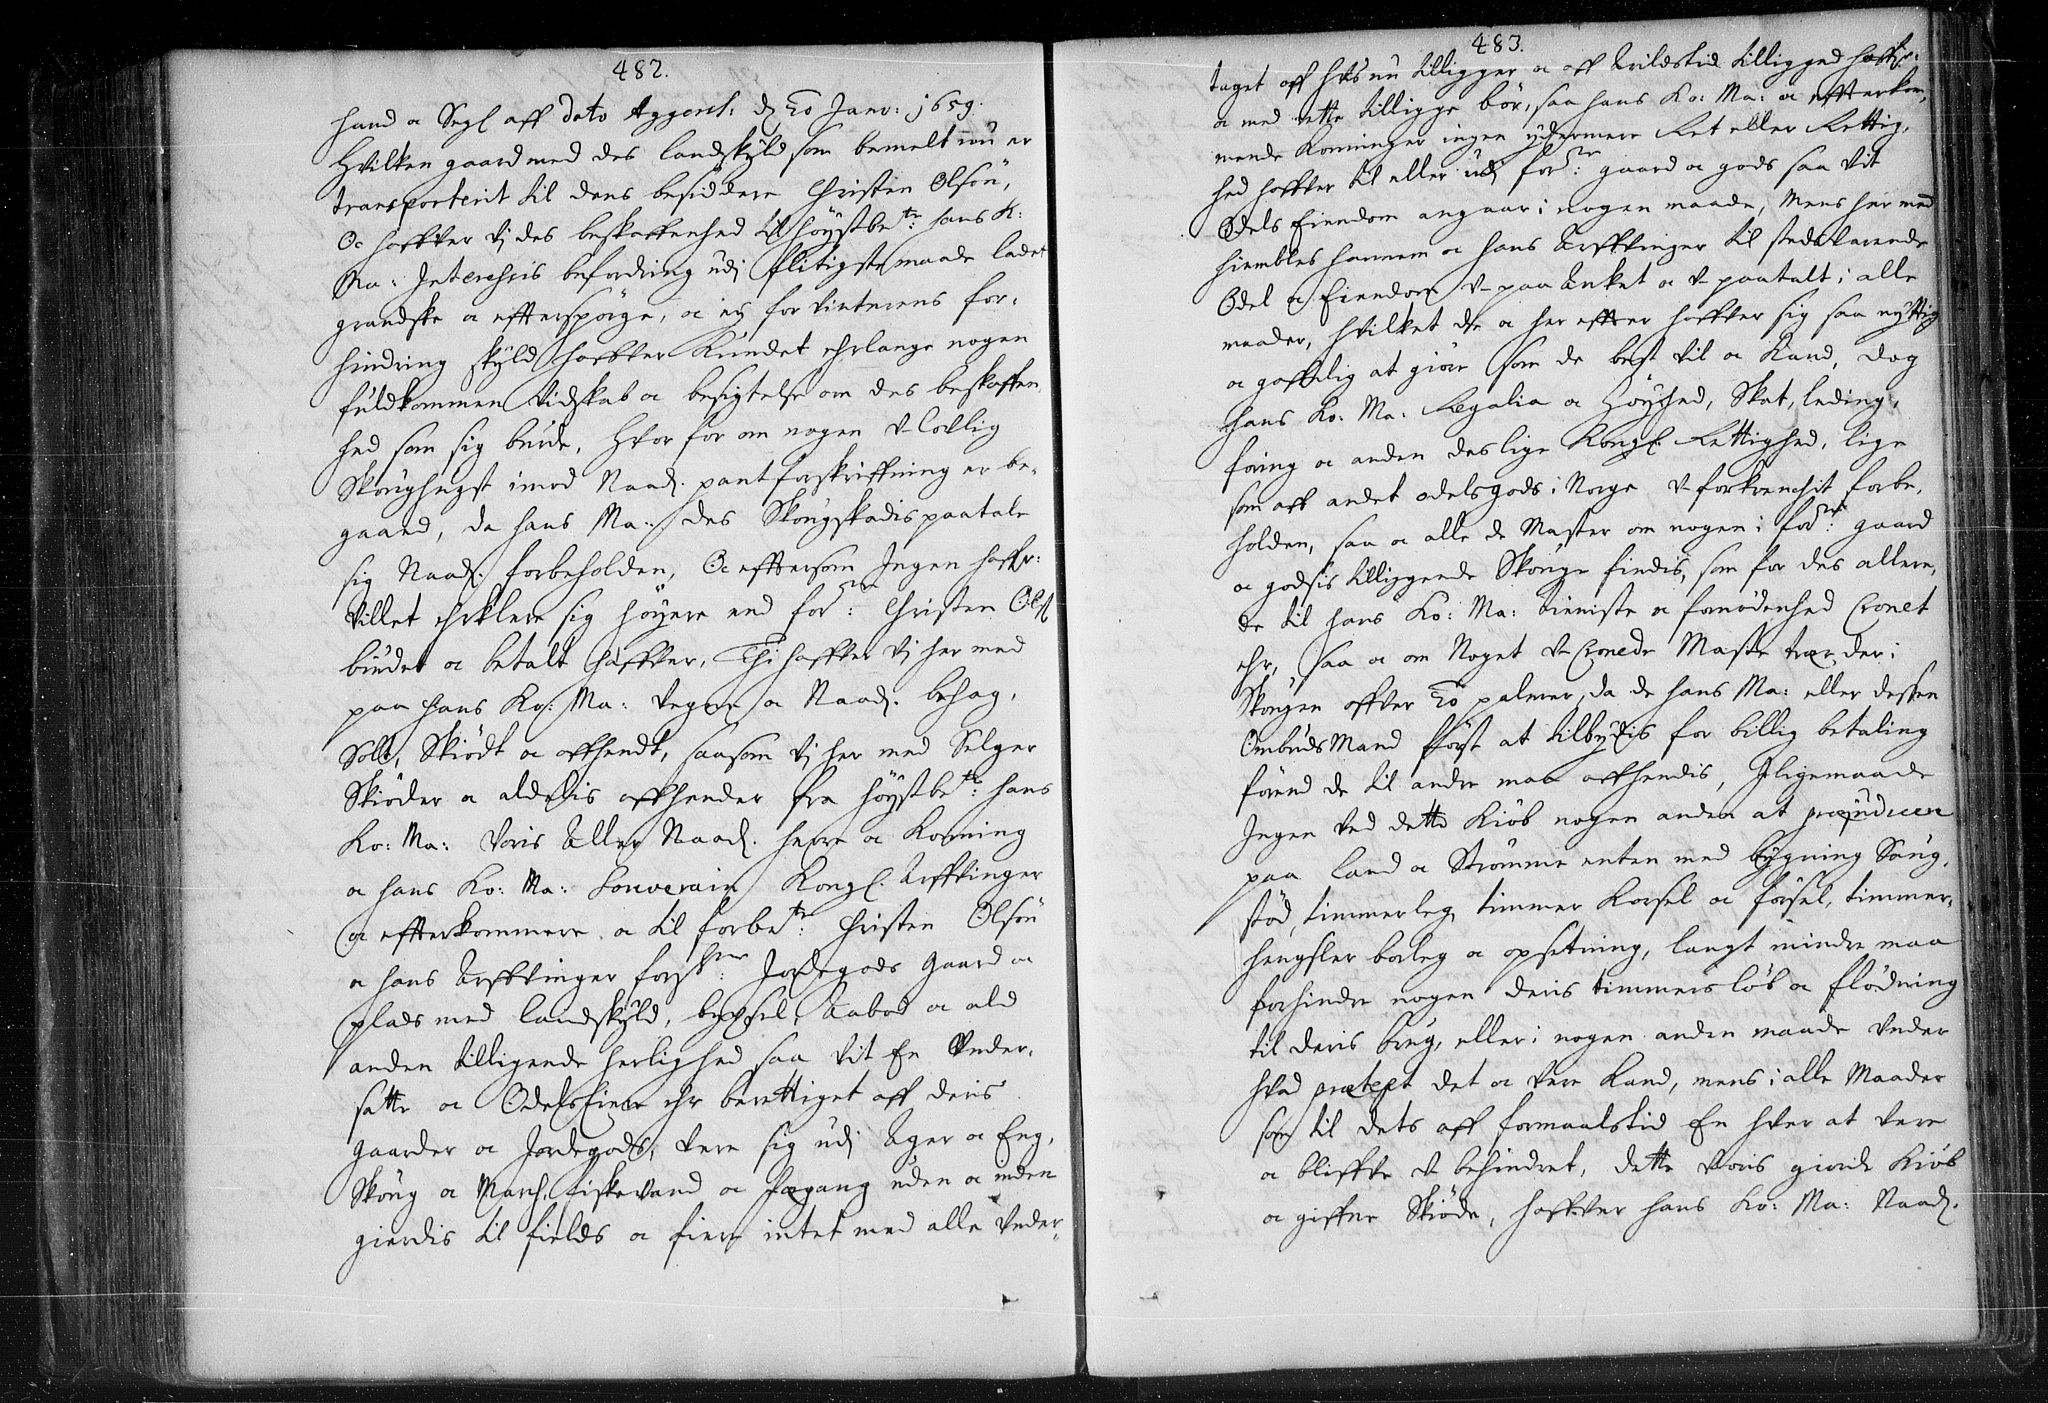 482.
hand oc Segl aff dato Aggersh: d 20 Janv: 1659.
Hvilken gaard med des landskyld som bemelt nu er
transporterit til dens besiddere Christen Olsön,
Oc haffver vj des beskaffenhed til höystbetr: hans K:
Ma: Interehsis befordring udj flitigste maade ladet
grandske oc effterspörge, oc ey for vinterens for,
hindring skyld haffver kundet ehrlange nogen
fuldkommen vidskab oc besigtelse om des beskaffen,
hed som sig burde, Hvor for om nogen v-lovlig
Skoughugst imod Naad. pantforskriffning er be,
gaaed, da hans Ma: des Skougskadis paatale
sig Naad. forbeholden, Oc efftersom Ingen haffr:
villet ehrklere sig höyere end forne: Christen Ols:
budet oc betalt haffver, Thi haffver vj her med
paa hans Ko: Ma: vegne oc Naad. behag,
Sold, Skiödt oc affhendt, saasom vj her med Selger
Skiöder oc aldelis affhender fra höystbetr: hans
Ko: Ma: voris Aller Naad. herre oc Konning
oc hans Ko: Ma: Souverain Kongl. Arffvinger
oc effterkommere oc til forbetr: Christen Olsön
oc hans Arffvinger forskne: Jordegods Gaard oc
plads med landskyld, bygsel, Aabod oc ald
anden tilligende herlighed saa vit En Under,
satte oc Odelseiere ehr berettiget aff deris
gaarder oc Jordegods, vere sig udj Ager oc Eng,
Skoug oc March, fiskevand oc Fægang uden oc inden
gierdis til fields oc fiere intet med alle under,
483.
taget aff hvis nu tilligger oc aff Arildstid tilligged haffr:
oc med rette tilligge bör, saa hans Ko: Ma: oc effterkom,
mende Konninger ingen ydermere Ret eller Rettig,
hed haffver til eller udj forne: gaard oc gods saa vit
Odels Eiendom angaar i nogen maade, Mens her med
hiembles hannem oc hans Arffvinger til stedsvarende
Odel oc Eiendom v-paaanket oc v-paatalt i alle
maader, hvilket de oc her effter haffver sig saa nyttig
oc gaffnlig at giöre som de best vil oc kand, dog
hans Ko: Ma: Regalia oc Höyhed, Skat, leding,
foring oc anden deslige Kongl. Rettighed, lige
som aff andet odelsgods i Norge v-forkrenchit forbe,
holden, saa oc alle de Master om nogen i forne: gaard
oc godsis tilliggende Skouge findis, som for des allere,
de til hans Ko: Ma: tieniste oc fornödenhed Cronet
ehr, saa oc om Noget v-Cronede Maste træ der i
Skougen offver 20 palmer, da de hans Ma: eller dessen
OmbudsMand först at tilbydis for billig betaling
förend de til andre maa affhendis, Iligemaade
Ingen ved dette Kiöb nogen anden at præjudicere
paa land oc Strömme enten med bygning Saug,
stöd, timmerleg, timmer Korsel oc försel, timmer,
hengsler borleg oc opsetning, langt mindre maa
forhindre nogen deris timmers löb oc flödning
til deris brug, eller i nogen anden maade under
hvad prætext det oc vere kand, mens i alle Maader
som til dets aff formaalstid En hver at vere
oc bliffve v-behindret, dette voris giorde Kiöb
oc giffne Skiöde, haffver hans Ko: Ma: Naad.